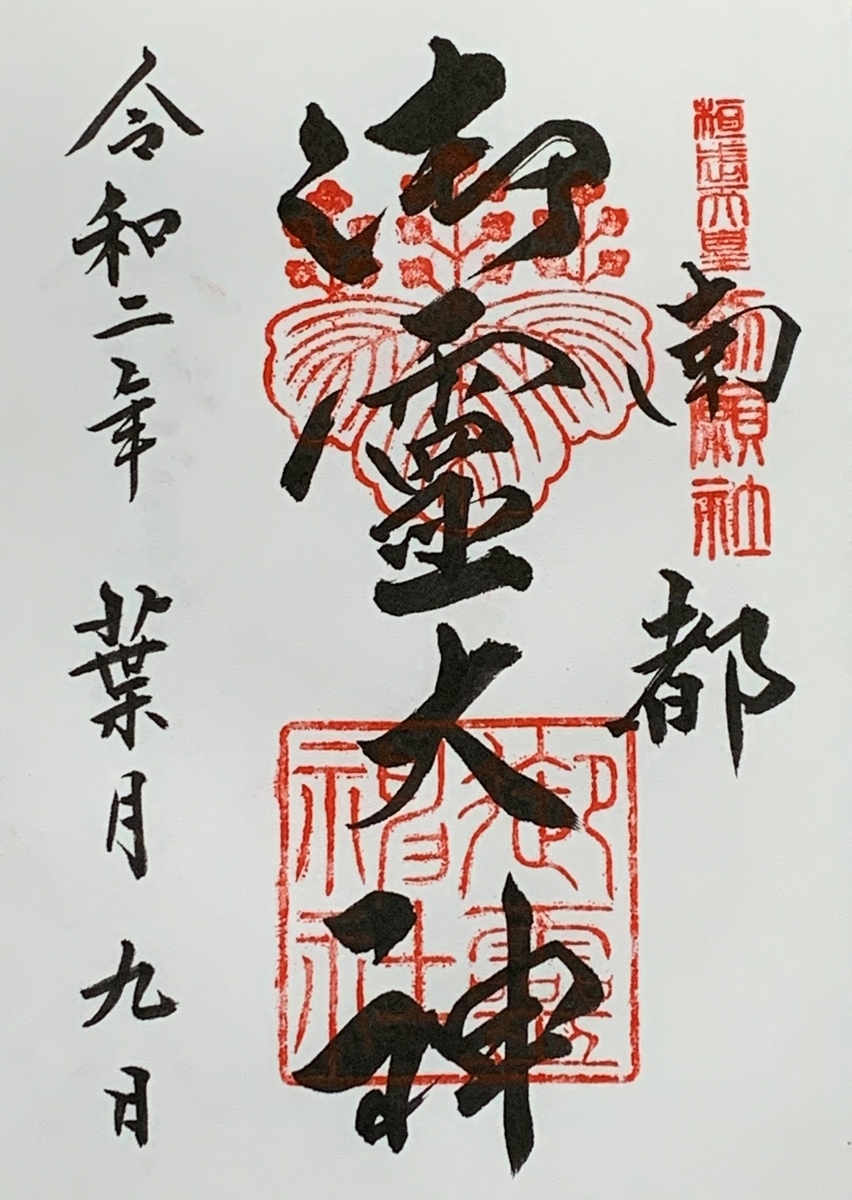 桓武天皇勅願社
南都
御霊大神
御霊神社
令和二年 葉月 九日